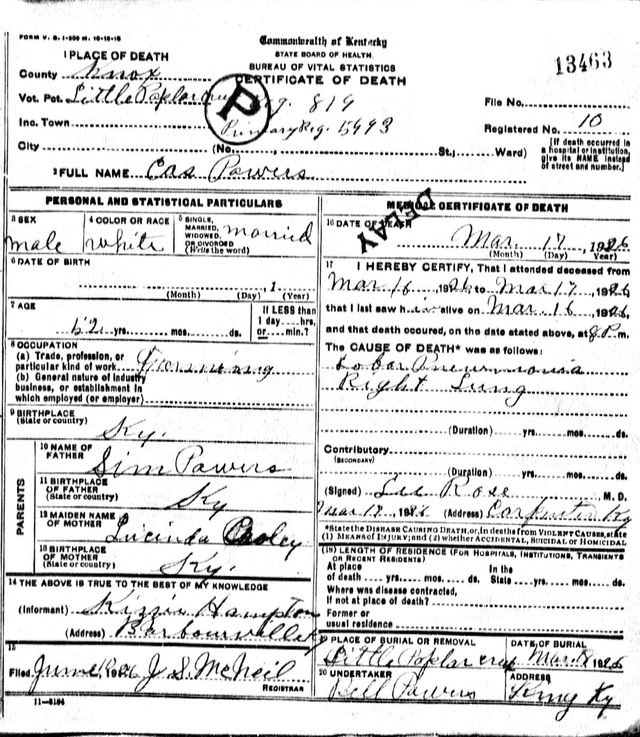 FORM V. S. 1-500 M. 10-15-19
Commonwealth of Kentucky
STATE BOARD OF HEALTH
BUREAU OF VITAL STATISTICS
CERTIFICATE OF DEATH
13463
1 PLACE OF DEATH
County Knox
Vot. Pct. Little Poplar 819
P
File No.
Inc. Town Primary Reg. 5493
Registered No. 10
City (No. St.; Ward)
[If death occurred in a hospital or institution, give its NAME instead of street and number.]
2 FULL NAME Cas Powers
PERSONAL AND STATISTICAL PARTICULARS
3 SEX
male
4 COLOR OR RACE
white
5 SINGLE, MARRIED, WIDOWED, OR DIVORCED (Write the word)
married
6 DATE OF BIRTH
, 1
(Month) (Day) (Year)
7 AGE
62 yrs. mos. ds.
If LESS than 1 day hrs. or min.?
8 OCCUPATION
(a) Trade, profession, or particular kind of work
(b) General nature of industry business, or establishment in which employed (or employer)
9 BIRTHPLACE
(State or country)
Ky.
PARENTS
10 NAME OF FATHER
Sim Powers
11 BIRTHPLACE OF FATHER
(State or country)
Ky
12 MAIDEN NAME OF MOTHER
Lucinda
13 BIRTHPLACE OF MOTHER
(State or country)
Ky.
14 THE ABOVE IS TRUE TO THE BEST OF MY KNOWLEDGE
(Informant) Kizzie Hampton
(Address) Barbourville Ky
15
Filed June 1926 J S. McNeil
REGISTRAR
11—3184
MEDICAL CERTIFICATE OF DEATH
DELAY
16 DATE OF DEATH
Mar. 17, 1926
(Month) (Day) (Year)
17 I HEREBY CERTIFY, That I attended deceased from
Mar 16 1926 to Mar 17, 1926
that I last saw him alive on Mar 16 1926,
and that death occured, on the date stated above, at 8 P. m.
The CAUSE OF DEATH* was as follows:
Lobar Pneumonia
Right Lung
(Duration) yrs. mos. ds.
Contributory
(SECONDARY)
(Duration) yrs. mos. ds.
(Signed) Lee Rose M. D.
Mar 17, 1926 (Address) Carpenter Ky
*State the DISEASE CAUSING DEATH, or, in deaths from VIOLENT CAUSES, state
(1) MEANS OF INJURY; and (2) whether ACCIDENTAL, SUICIDAL OR HOMICIDAL
(18) LENGTH OF RESIDENCE (FOR HOSPITALS, INSTITUTIONS, TRANSIENTS OR RECENT RESIDENTS)
At place of death yrs. mos. ds. In the State yrs. mos. ds.
Where was disease contracted,
if not at place of death?
Former or
usual residence
19 PLACE OF BURIAL OR REMOVAL
Little Poplar
DATE OF BURIAL
Mar 1926
20 UNDERTAKER
Bell Powers
ADDRESS
Ky